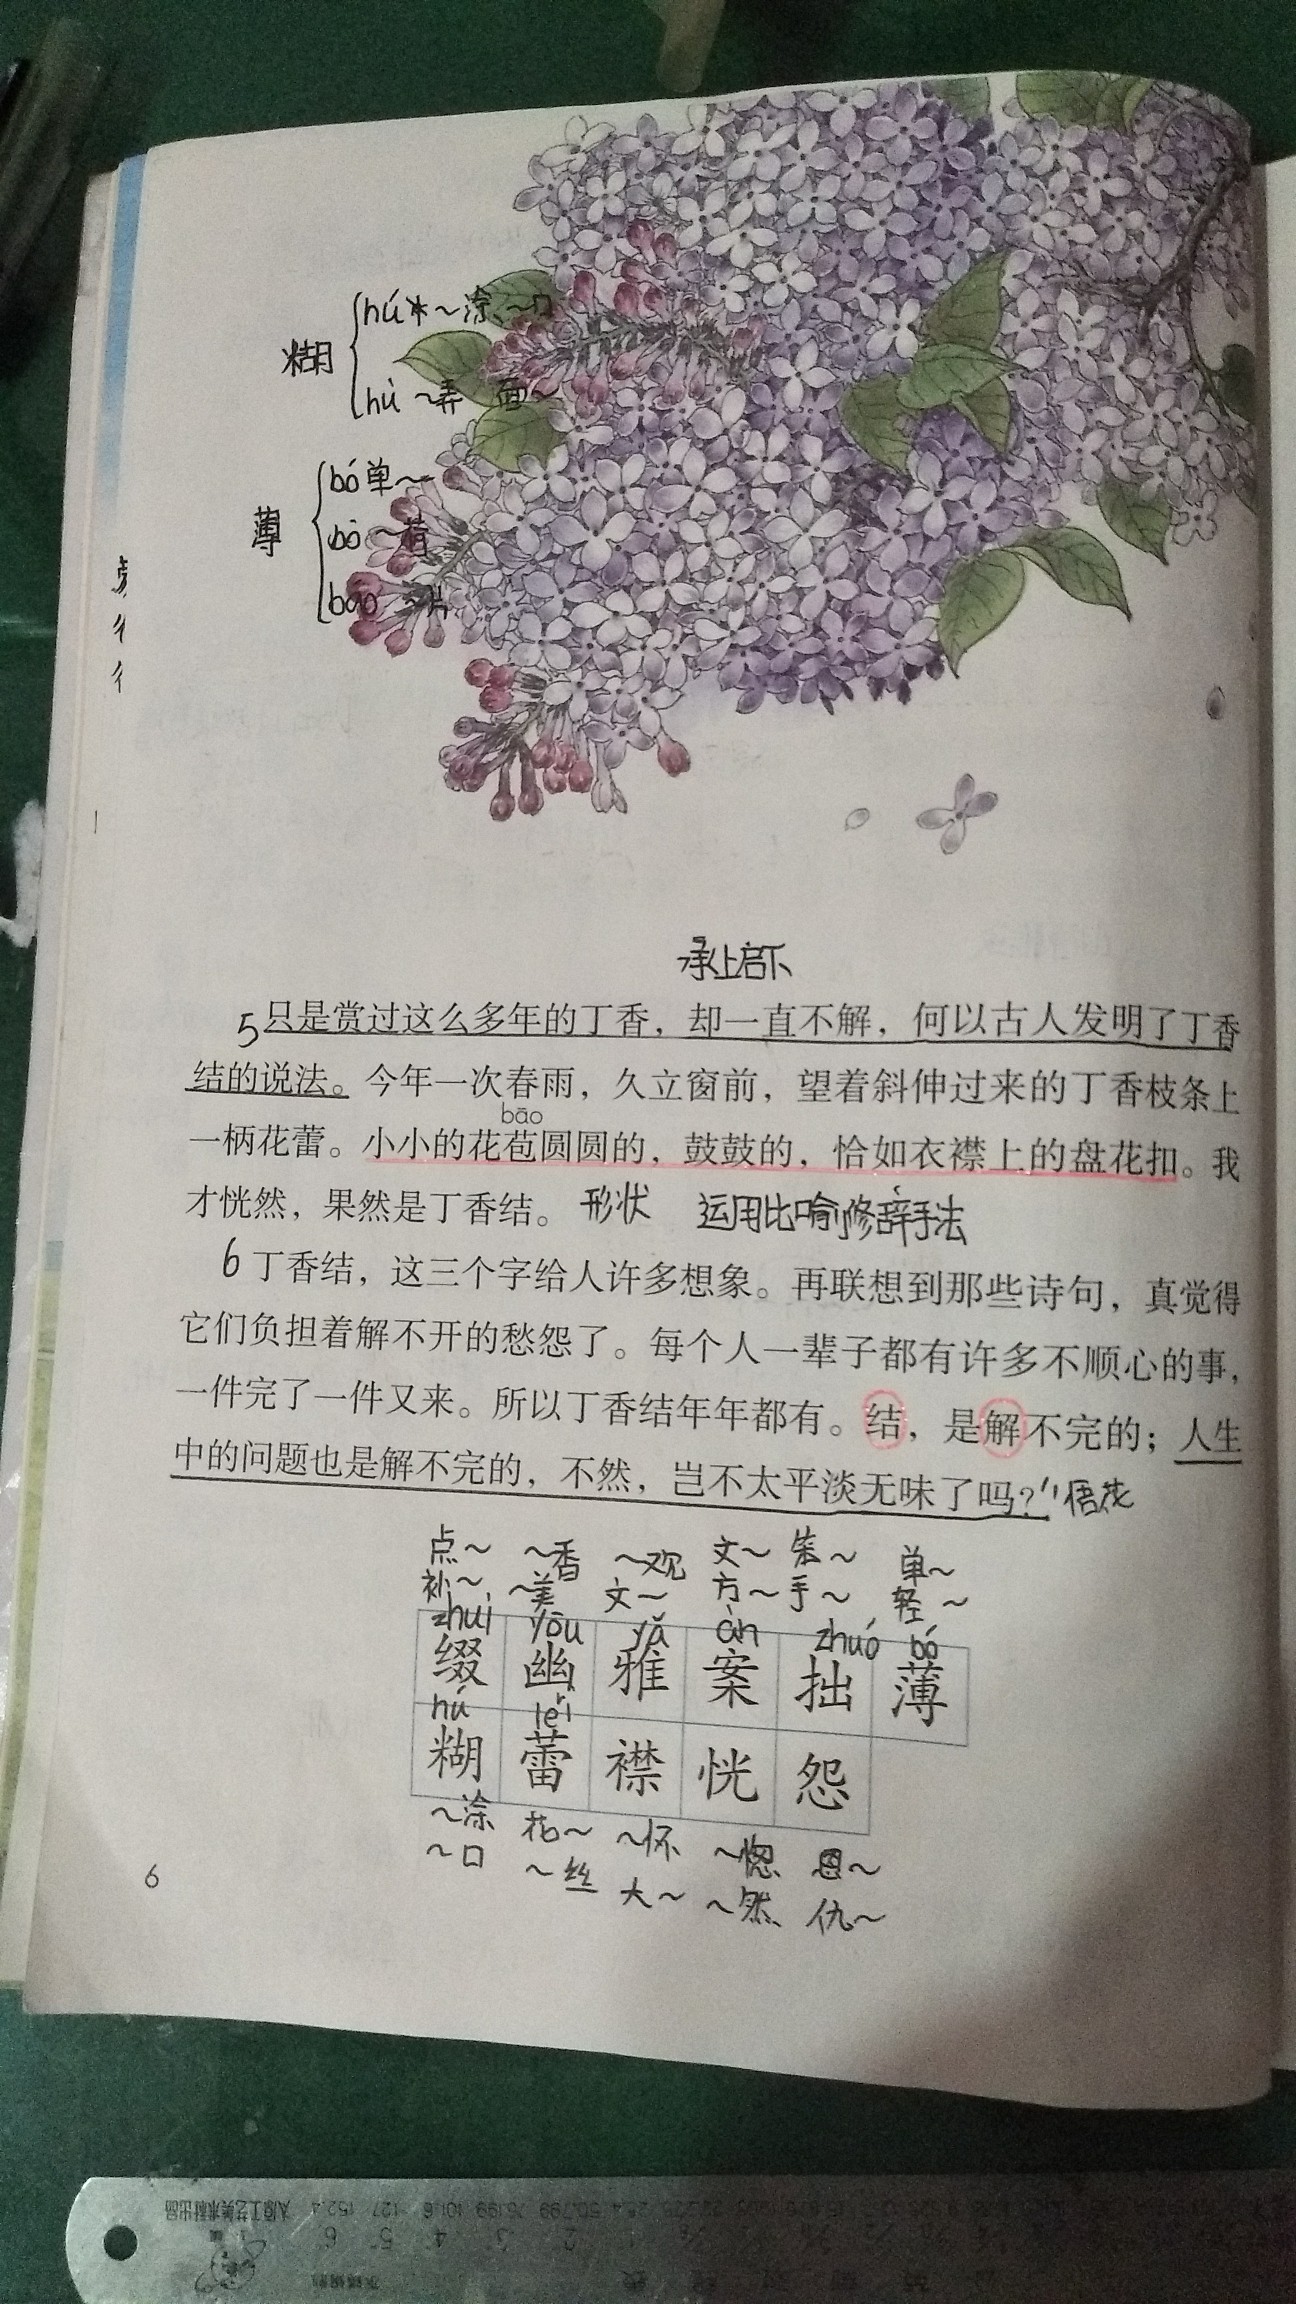 糊
hú 米～涂、～口
hù ～弄 面～
薄
bó 单～
bò ～荷
báo ～片
承上启下
5 只是赏过这么多年的丁香，却一直不解，何以古人发明了丁香
结的说法。今年一次春雨，久立窗前，望着斜伸过来的丁香枝条上
bāo
一柄花蕾。小小的花苞圆圆的，鼓鼓的，恰如衣襟上的盘花扣。我
才恍然，果然是丁香结。 形状 运用比喻修辞手法
6 丁香结，这三个字给人许多想象。再联想到那些诗句，真觉得
它们负担着解不开的愁怨了。每个人一辈子都有许多不顺心的事，
一件完了一件又来。所以丁香结年年都有。结，是解不完的；人生
中的问题也是解不完的，不然，岂不太平淡无味了吗？ 悟花
点～ ～香 ～观 文～ 笨～ 单～
补～ ～美 文～ 方～ 手～ 轻～
zhuì yōu yǎ àn zhuó bó
缀 幽 雅 案 拙 薄
hú lěi
糊 蕾 襟 恍 怨
～涂 花～ ～怀 ～惚 恩～
～口 ～丝 大～ ～然 仇～
6
152.4 127 101.6
6 5 4 3 2 1